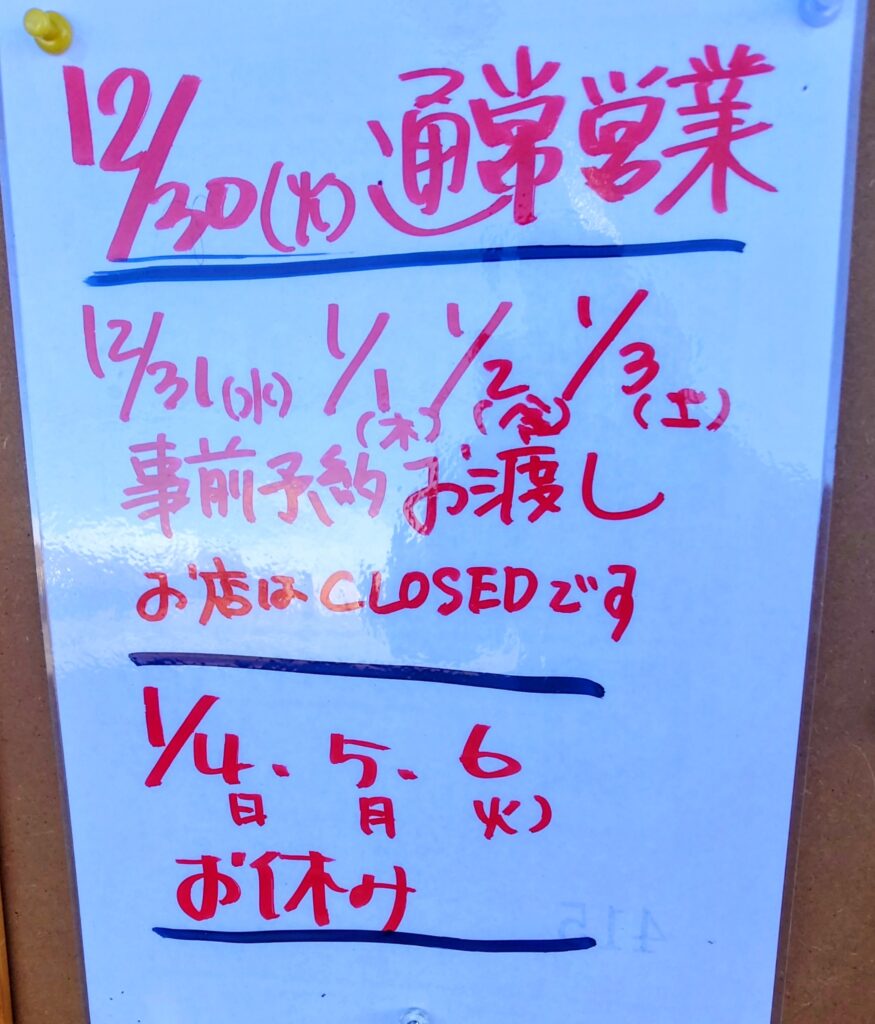 12/30(火) 通常営業
12/31(水) 1/1(木) 1/2(金) 1/3(土)
事前予約お渡し
お店はCLOSEDです
1/4、5、6
日 月 火)
お休み
415